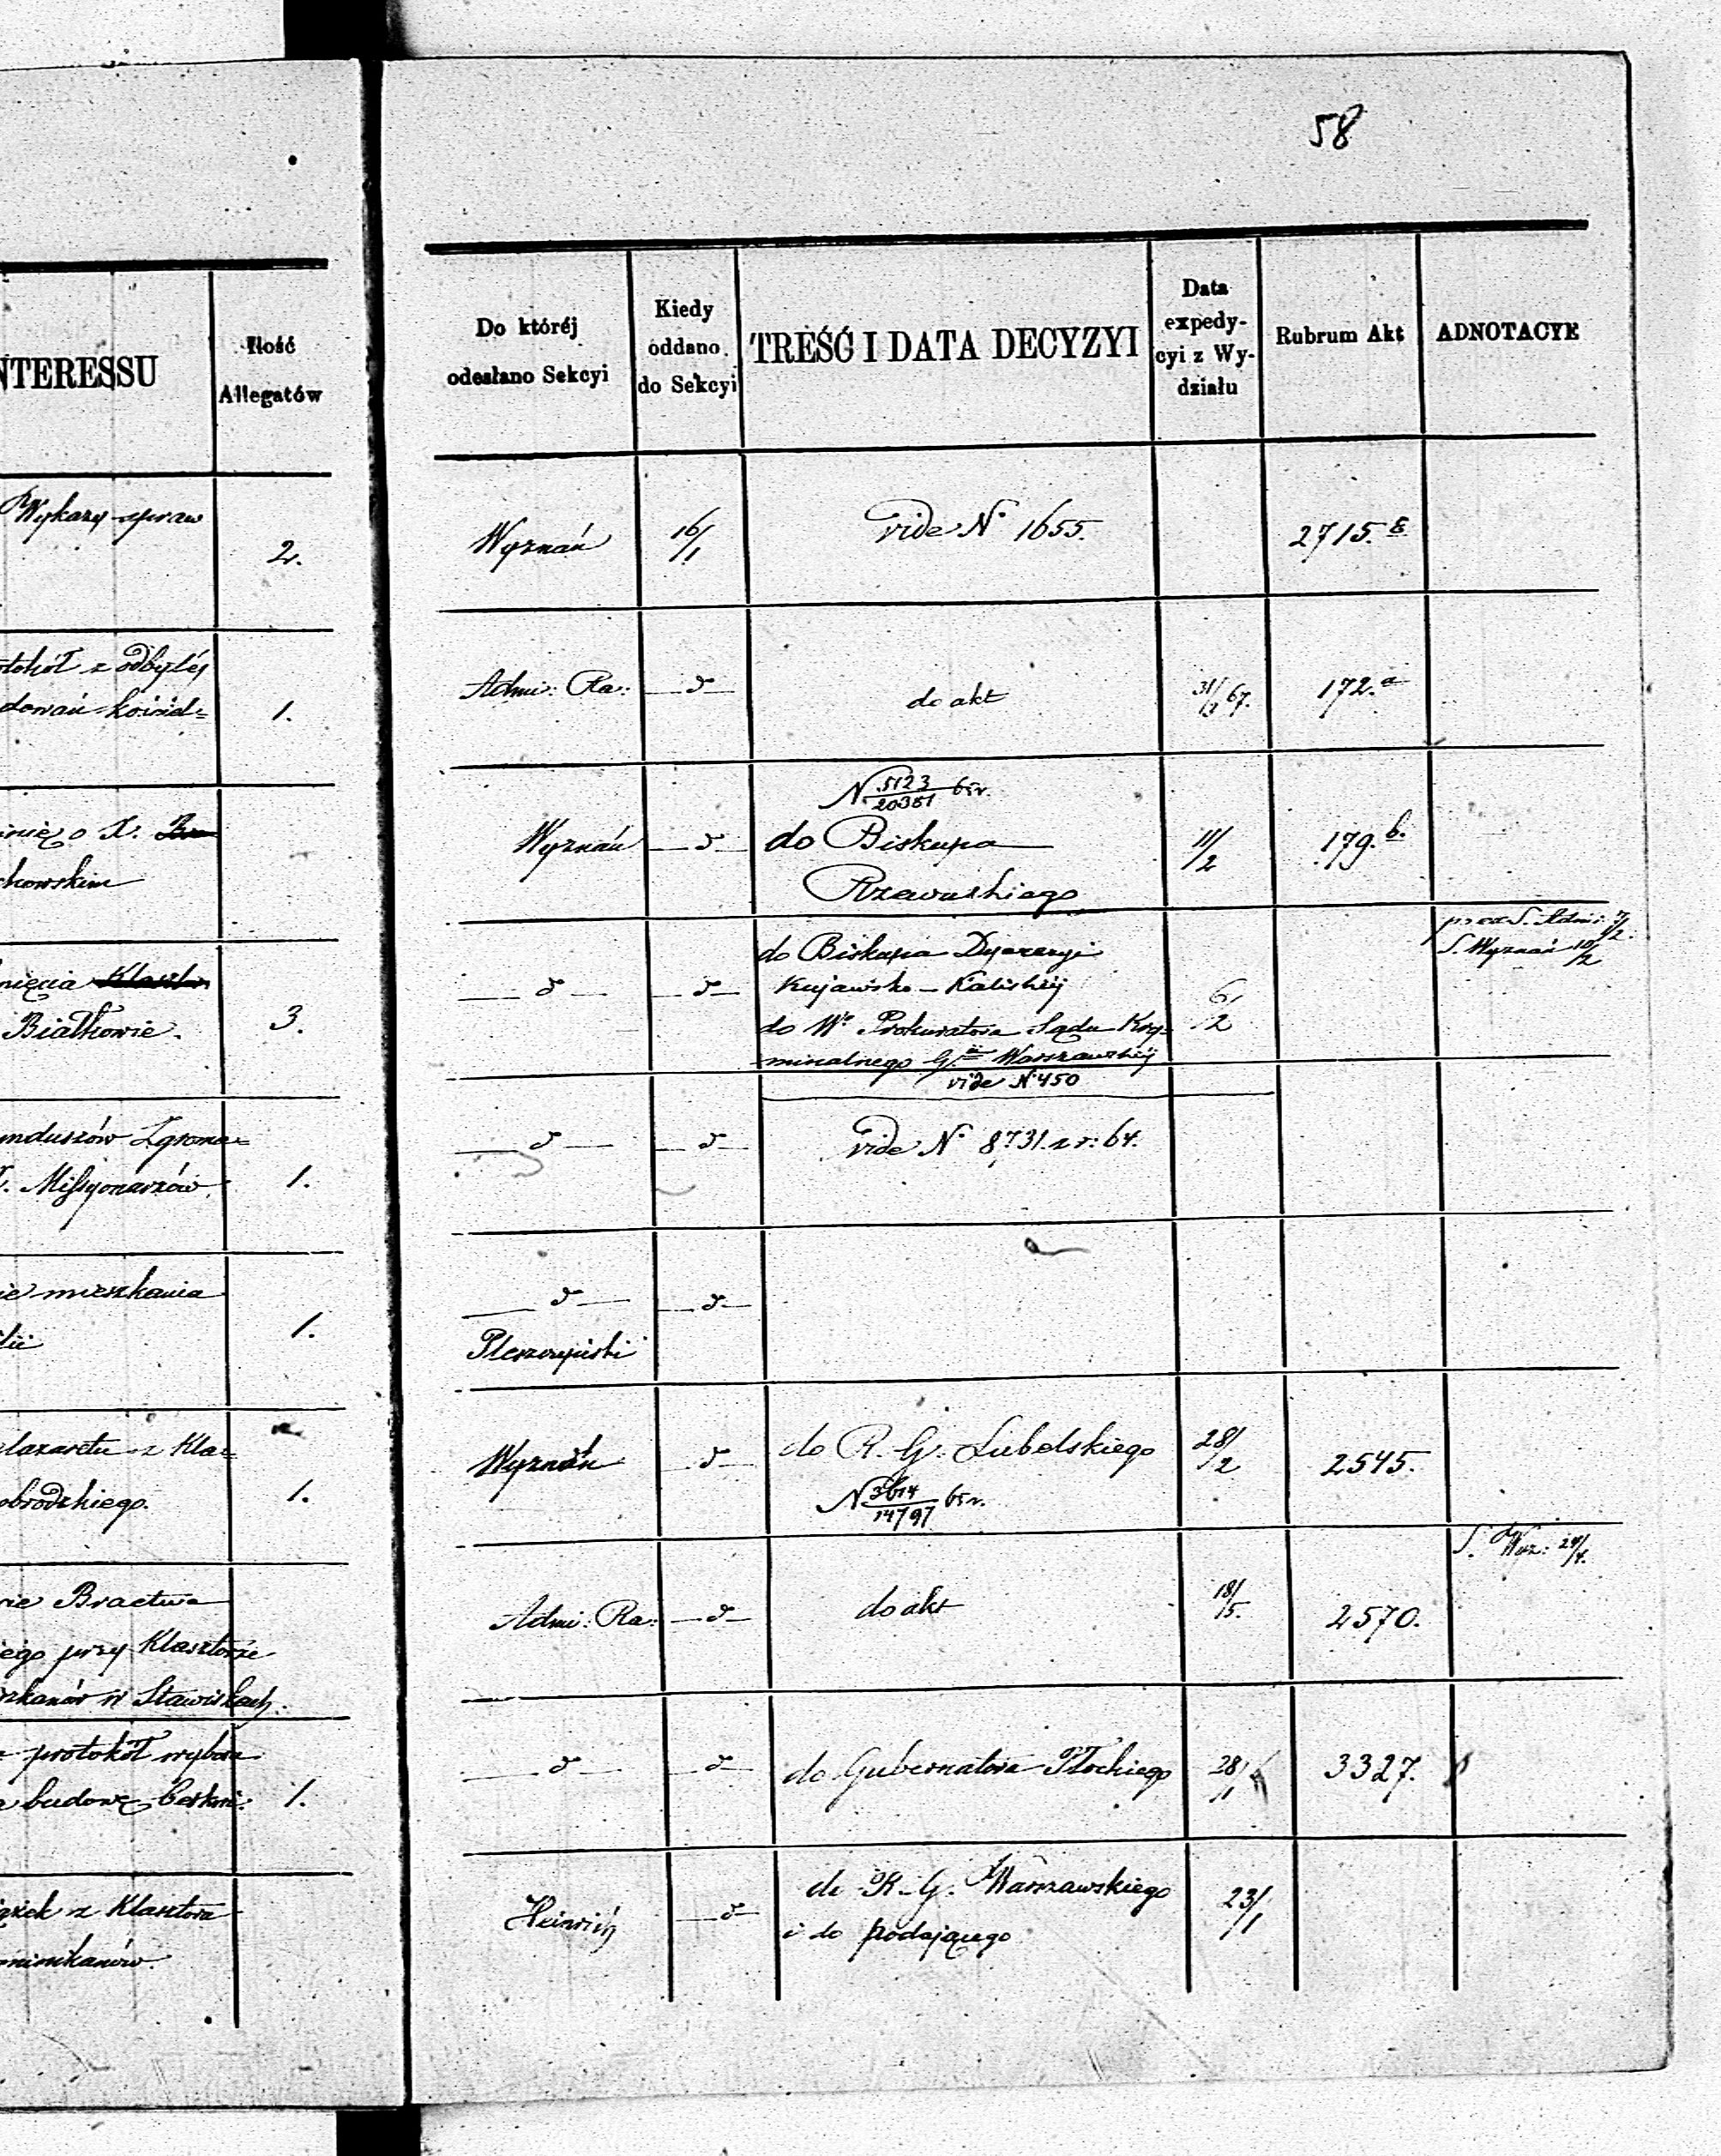 58
NTERESSU
Ilość
Allegatów
Wykazy spraw
2.
otokół z odbytéj
dowań kościel=
1.
inię o X.
chowskim
nięcia Klaszt
Białkowie.
3.
unduszów Zgroma=
X. Missyonarzów.
1.
ie mieszkania
lii
1.
lazaretu z Kla=
obrodzkiego.
1.
nie Bractwa
iego przy Klasztorze
rzkanów w Stawiskach.
protokół wybor
a budowę
1.
iążek z Klasztora
minikanów.
Do któréj
odesłano Sekcyi
Kiedy
oddano
do Sekcyi
TREŚĆ I DATA DECYZYI
Data
expedy-
cyi z Wy-
działu
Rubrum Akt
ADNOTACYE
Wyznań 16/1 Vide No 1655. 2715.
Admi: Ra: — d — do akt 31/3 67. 172.a
N 5123/20351 65 r.
Wyznań — d — do Biskupa 11/2 179.b.
Rzewuskiego
S. Admi: 7/2.
S. Wyznań 10/2
do Biskupa Dyecezyi
— d — — d — Kujawsko-Kaliskiéj 6/2
do Wo Prokuratora Sądu Kry-
minalnego G. Warszawskiéj
vide N. 450
— d — — d — vide No 8731 z r: 64.
— d — — d —
Pleszczyński
Wyznań — d — do R. G. Lubelskiego 28/2 2545.
N 3614/14797 65 r.
S. Wyz: 24/4.
Admi: Ra: — d — do akt 18/5. 2570.
— d — — d — do Gubernatora Płockiego 28/1 3327.
Heinrich — d — do R. G. Warszawskiego 23/1
i do podającego